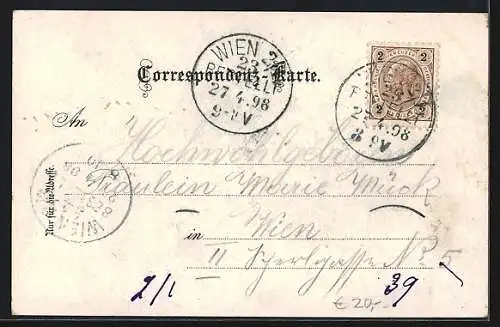 WIEN 2
BESTELLT
27.4.98
9-V
2
2
2
2
27.4.98
8.V
Correspondenz-Karte.
An
Hochwohlgeboren
Fräulein Marie Mück
Nur für die Adresse.
WIEN
in Wien
II Scherlgasse No 5
2/1
39
€ 20,-